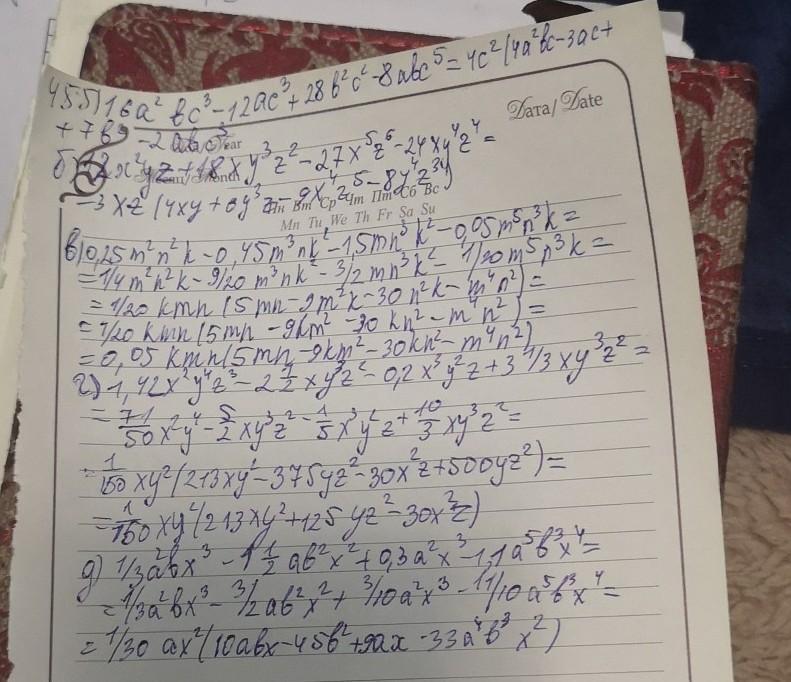 455) 16a²bc³ - 12ac³ + 28b²c² - 8abc⁵ = 4c² (4a²bc - 3ac +
+ 7b² - 2abc³
Year
Дата/Date
б) x²yz + 18xy³z² - 27x⁵z⁶ - 24xy⁴z⁴ =
Month
= 3xz (4xy + 6y³z - 9x⁴z⁵ - 8y⁴z³)
Пн Вт Ср Чт Пт Сб Вс
Mn Tu We Th Fr Sa Su
в) 0,25m²n²k - 0,45m³nk² - 1,5mn³k² - 0,05m⁵n³k =
= 1/4m²n²k - 9/20 m³nk² - 3/2mn³k² - 1/20m⁵n³k =
= 1/20 kmn (5mn - 9m²k - 30n²k - m⁴n²) =
= 1/20 kmn (5mn - 9km² - 30kn² - m⁴n²) =
= 0,05 kmn (5mn - 9km² - 30kn² - m⁴n²)
г) 1,42x²y⁴z³ - 2 1/2 xy³z² - 0,2x³y²z + 3 1/3 xy³z² =
= 71/50 x²y⁴ - 5/2 xy³z² - 1/5 x³y²z + 10/3 xy³z² =
= 1/150 xy² (213xy² - 375yz² - 30x²z + 500yz²) =
= 1/150 xy² (213xy² + 125yz² - 30x²z)
д) 1/3a²bx³ - 1 1/2 ab²x² + 0,3a²x³ - 1,1a⁵b³x⁴ =
= 1/3a²bx³ - 3/2ab²x² + 3/10a²x³ - 11/10a⁵b³x⁴ =
= 1/30 ax² (10abx - 45b² + 9ax - 33a⁴b³x²)